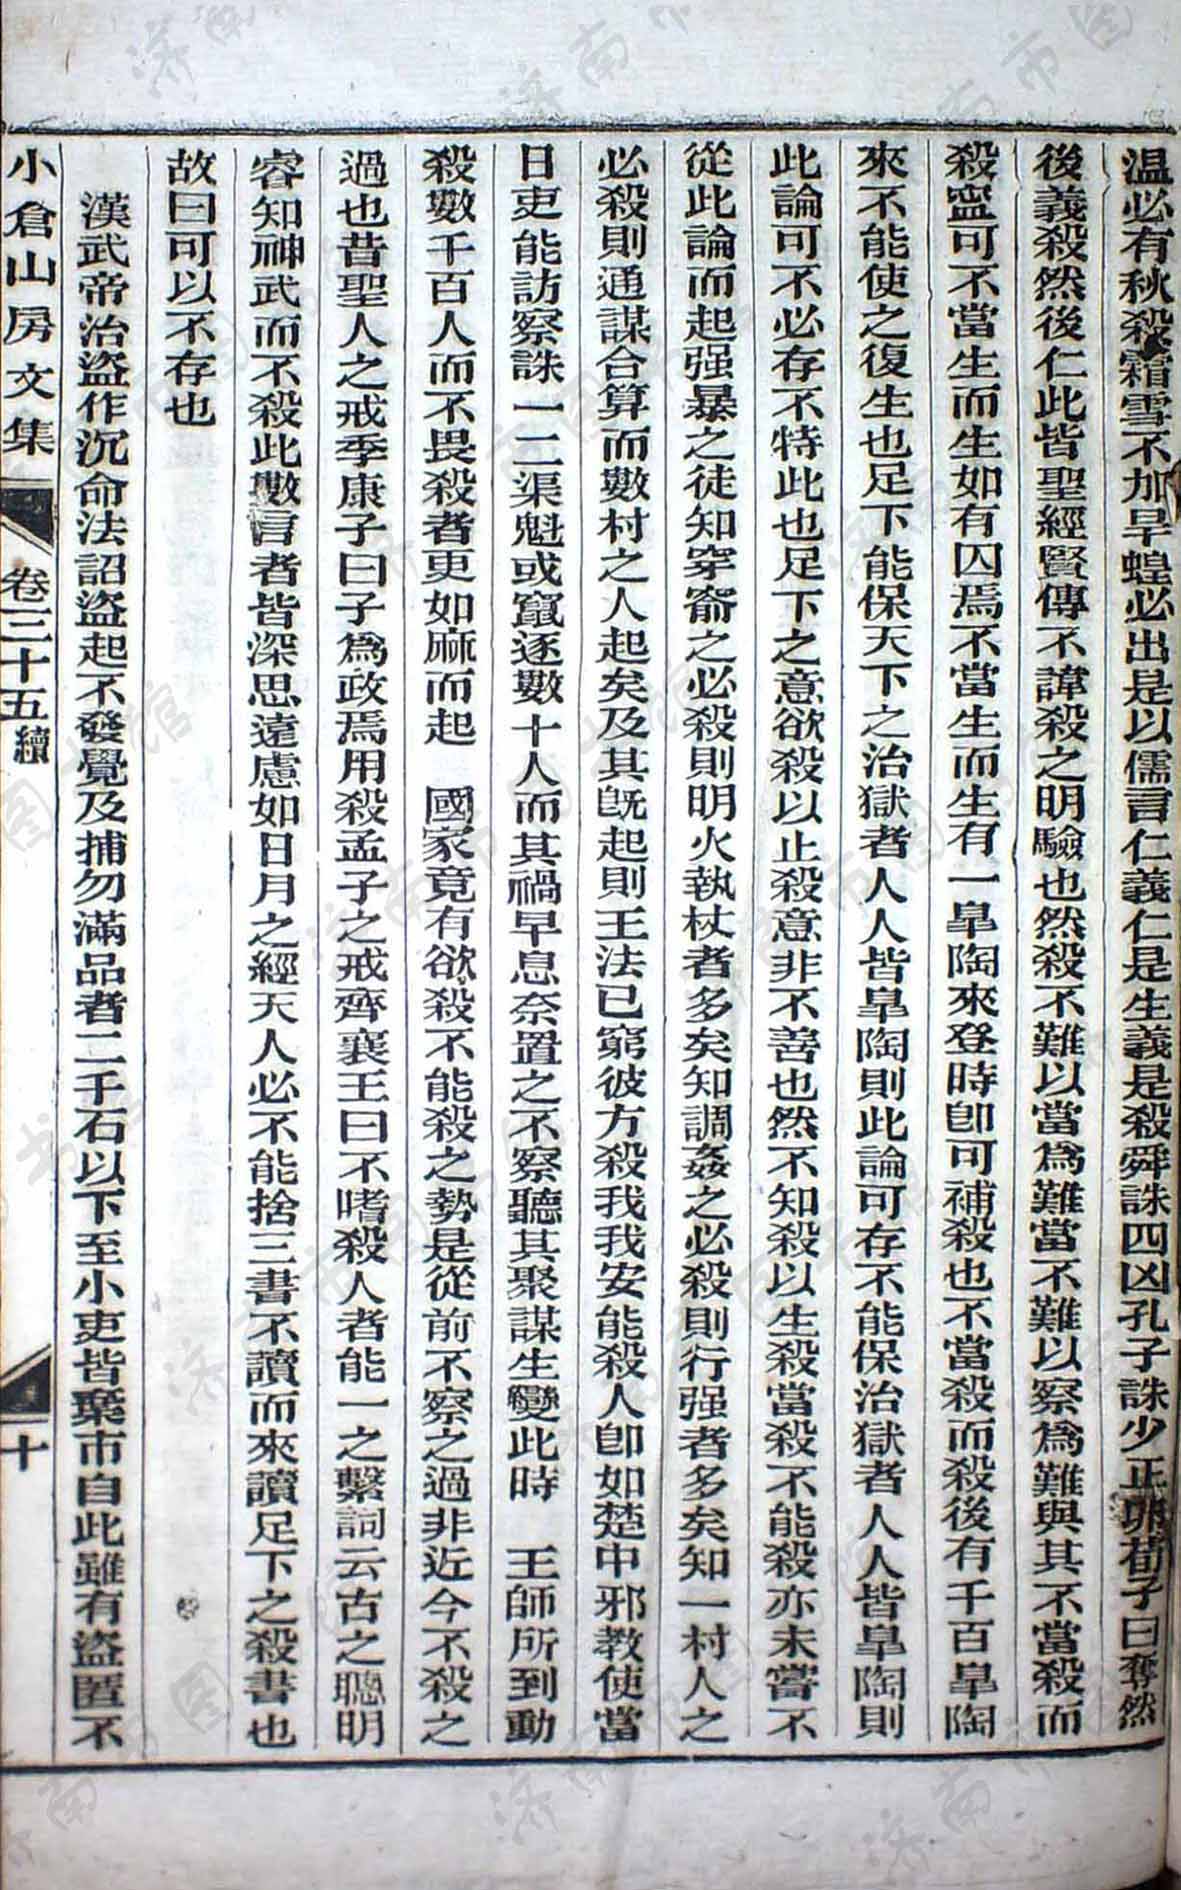 温必有秋殺霜雪不加旱蝗必出是以儒言仁義仁是生義是殺舜誅四凶孔子誅少正卯荀子曰奪然
後義殺然後仁此皆聖經賢傳不諱殺之明驗也然殺不難以當爲難當不難以察爲難與其不當殺而
殺寍可不當生而生如有囚焉不當生而生有一臯陶來登時卽可補殺也不當殺而殺後有千百臯陶
來不能使之復生也足下能保天下之治獄者人人皆臯陶則此論可存不能保治獄者人人皆臯陶則
此論可不必存不特此也足下之意欲殺以止殺意非不善也然不知殺以生殺當殺不能殺亦未嘗不
從此論而起强暴之徒知穿窬之必殺則明火執杖者多矣知調姦之必殺則行强者多矣知一村人之
必殺則通謀合算而數村之人起矣及其旣起則王法已窮彼方殺我我安能殺人卽如楚中邪教使當
日吏能訪察誅一二渠魁或竄逐數十人而其禍早息奈置之不察聽其聚謀生變此時　王師所到動
殺數千百人而不畏殺者更如麻而起　國家竟有欲殺不能殺之勢是從前不察之過非近今不殺之
過也昔聖人之戒季康子曰子爲政焉用殺孟子之戒齊襄王曰不嗜殺人者能一之繫詞云古之聰明
睿知神武而不殺此數言者皆深思遠慮如日月之經天人必不能捨三書不讀而來讀足下之殺書也
故曰可以不存也
漢武帝治盜作沉命法詔盜起不發覺及捕勿滿品者二千石以下至小吏皆棄市自此雖有盜匿不
小倉山房文集　卷三十五續　十
济南市图书馆